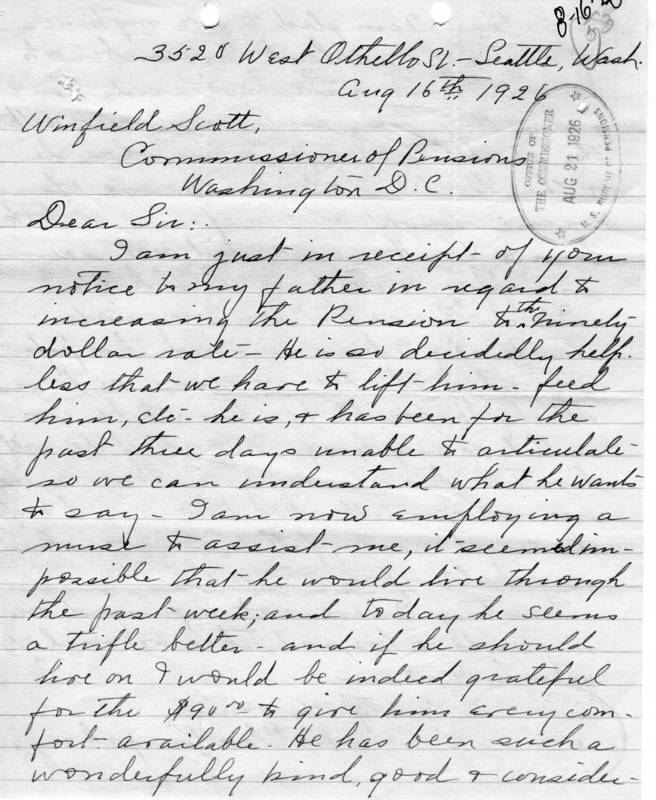 8-16
3520 West Othello St. - Seattle, Wash.
Aug 16th 1926
Winfield Scott,
Commissioner of Pensions
Washington D.C.
OFFICE OF
THE COMMISSIONER
AUG 21 1926
U.S. BUREAU OF PENSIONS
Dear Sir:.
I am just in receipt of your
notice to my father in regard to
increasing the Pension to the ninety
dollar rate - He is so decidedly help-
less that we have to lift him - feed
him, etc - he is, & has been for the
past three days unable to articulate
so we can understand what he wants
to say - I am now employing a
nurse to assist me, it seemed im-
possible that he would live through
the past week; and today he seems
a trifle better - and if he should
live on I would be indeed grateful
for the $90.00 to give him every com-
fort available. He has been such a
wonderfully kind, good & consider-